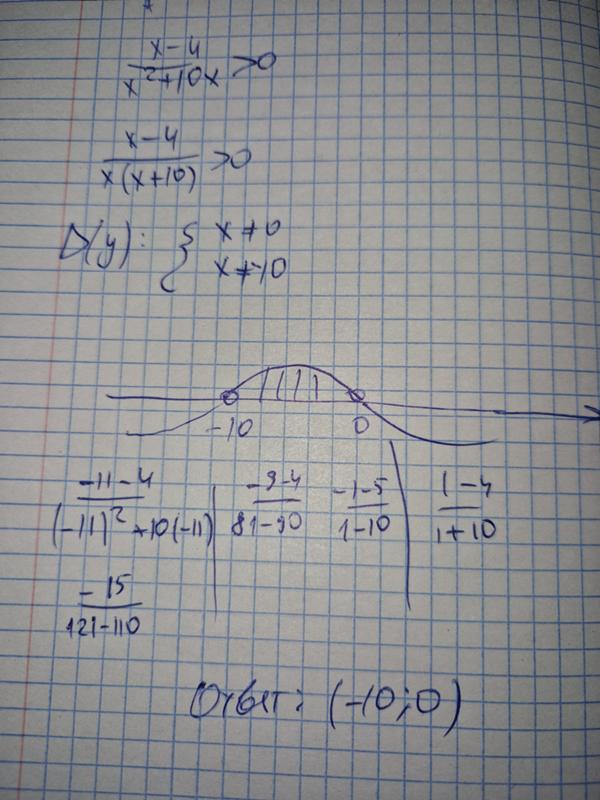 x-4
x²+10x >0
x-4
x(x+10) >0
D(y): { x≠0
x≠-10
-10 0
-11-4 | -9-4 -1-5 | 1-4
(-11)²+10(-11) | 81-90 1-10 | 1+10
-15
121-110
Ответ: (-10;0)